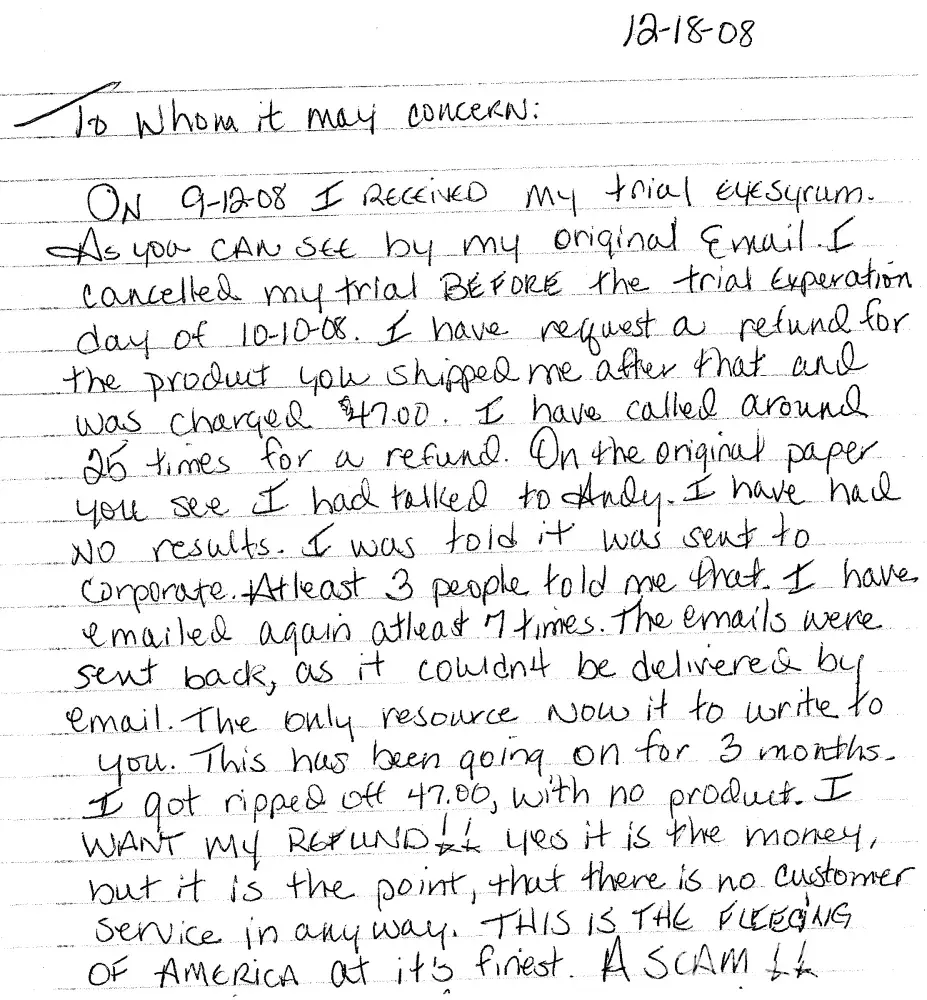 12-18-08
To Whom it may concern:
ON 9-12-08 I RECEIVED my trial EYESyrum.
As you CAN SEE by my original Email. I
cancelled my trial BEFORE the trial Experation
day of 10-10-08. I have request a refund for
the product you shipped me after that and
was charged $47.00. I have called around
25 times for a refund. On the original paper
you see I had talked to Andy. I have had
NO results. I was told it was sent to
Corporate. Atleast 3 people told me that. I have
emailed again atleast 7 times. The emails were
sent back, as it couldn't be delivered by
email. The only resource NOW it to write to
you. This has been going on for 3 months.
I got ripped off 47.00, with no product. I
WANT my REFUND!! yes it is the money,
but it is the point, that there is no customer
service in any way. THIS IS THE FLEECING
OF AMERICA at it's finest. A SCAM!!